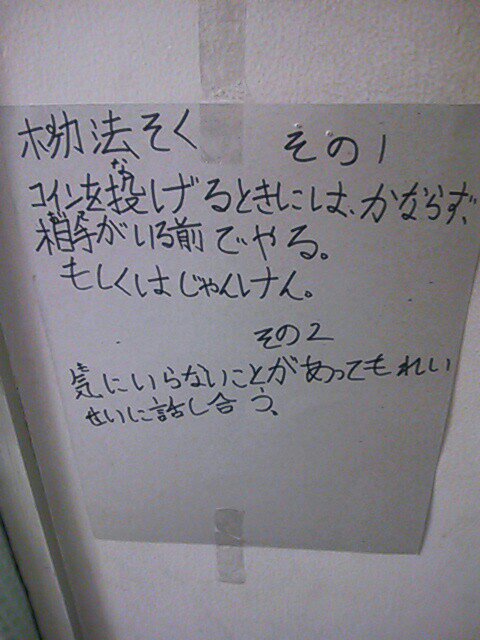 法そく その1
コインを投げるときには、かならず、
相手がいる前でやる。
もしくはじゃんけん。
その2
気にいらないことがあってもれい
せいに話し合う、